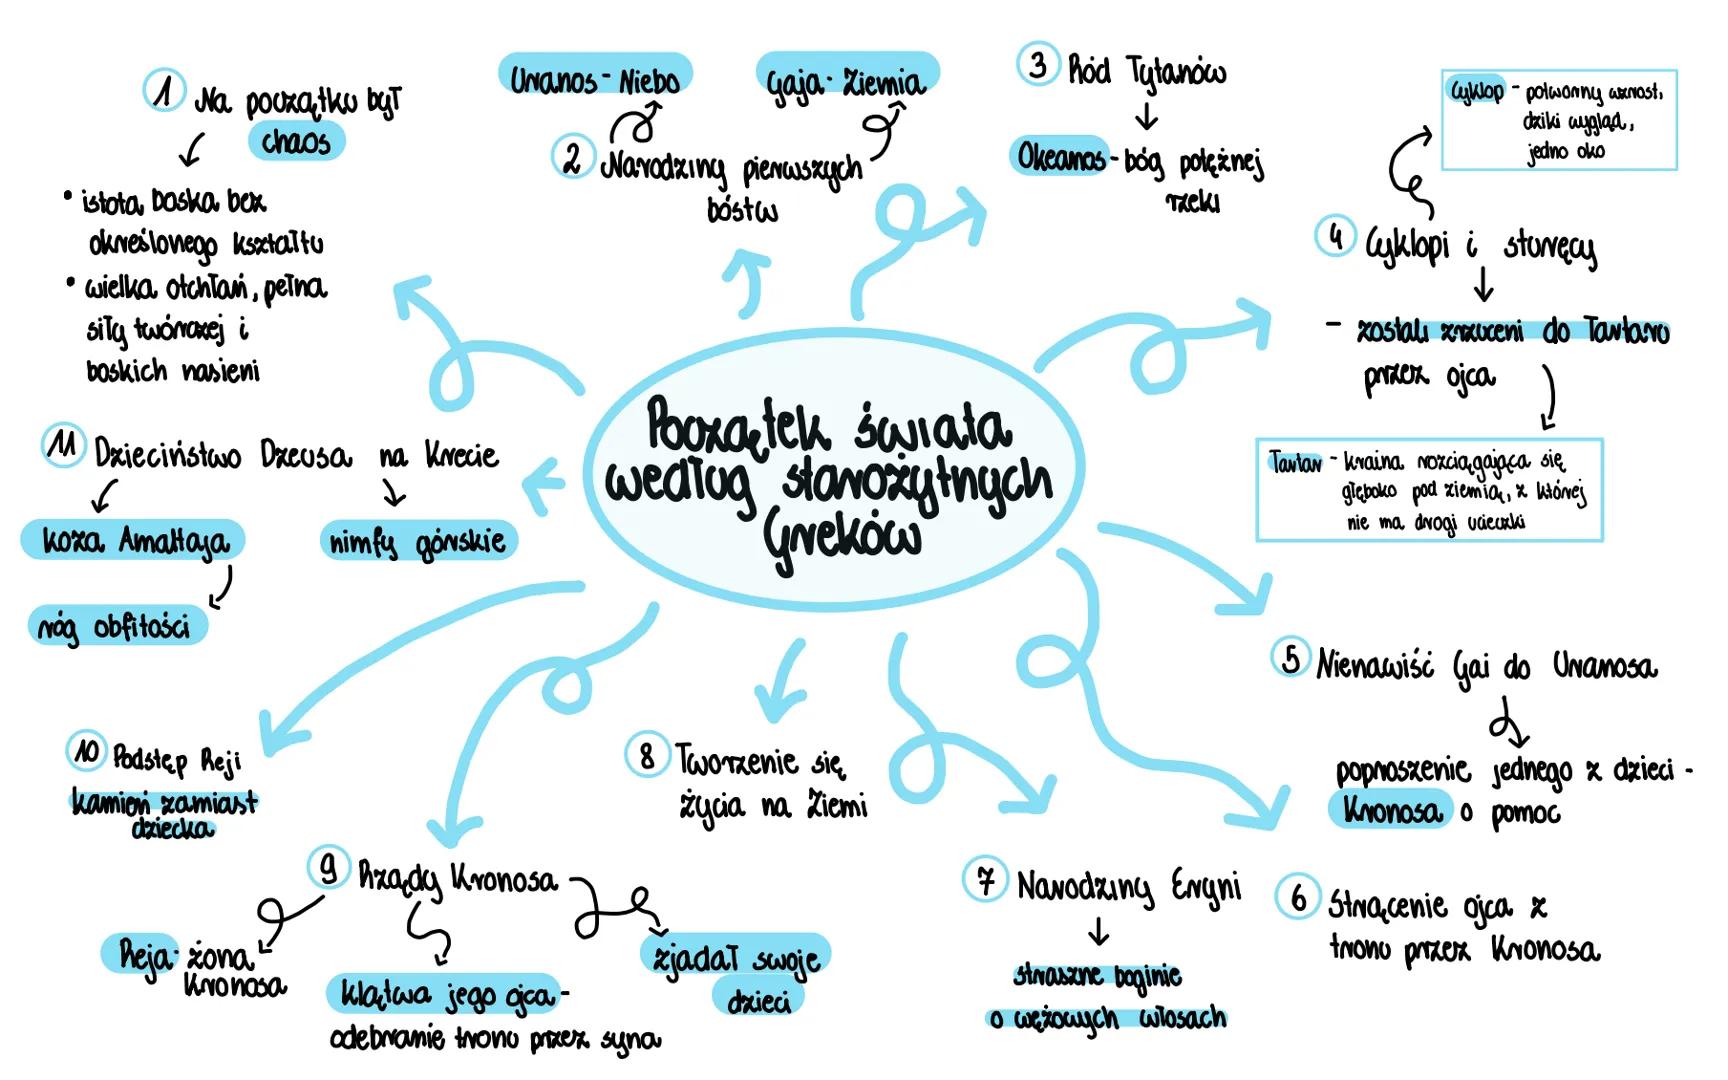 Początek świata
według starożytnych
Greków
1 Na początku był
chaos
• istota boska bez
określonego kształtu
• wielka otchłań, pełna
siły twórczej i
boskich nasieni
Uranos - Niebo
Gaja - Ziemia
2 Narodziny pierwszych
bóstw
3 Ród Tytanów
Okeanos - bóg potężnej
rzeki
4 Cyklopi i sturęcy
Cyklop - potworny wzrost,
dziki wygląd,
jedno oko
- zostali zrzuceni do Tartaru
przez ojca
Tartar - kraina rozciągająca się
głęboko pod ziemią, z której
nie ma drogi ucieczki
5 Nienawiść Gai do Uranosa
poproszenie jednego z dzieci -
Kronosa o pomoc
6 Strącenie ojca z
tronu przez Kronosa
7 Narodziny Eryni
straszne boginie
o wężowych włosach
8 Tworzenie się
życia na Ziemi
9 Rządy Kronosa
Reja - żona
Kronosa
klątwa jego ojca -
odebranie tronu przez syna
zjadał swoje
dzieci
10 Podstęp Reji
kamień zamiast
dziecka
11 Dzieciństwo Dzeusa na Krecie
koza Amaltaja
róg obfitości
nimfy górskie